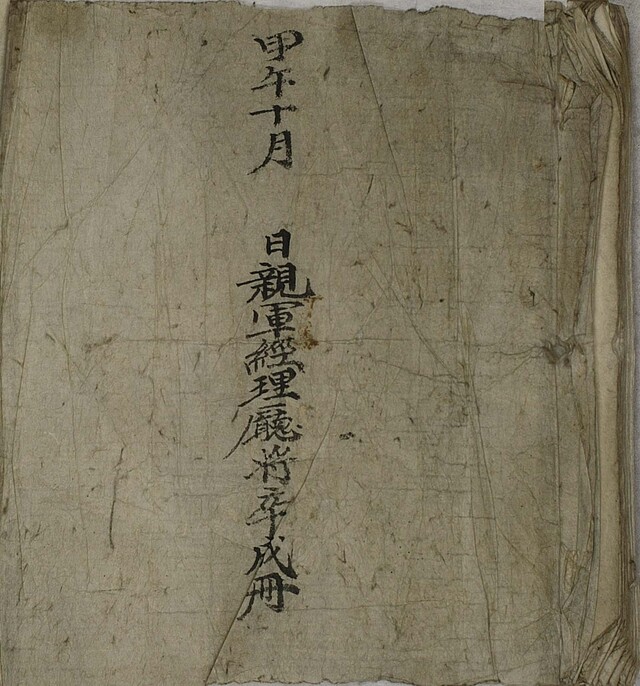 甲午十月 日親軍經理廳將卒成冊